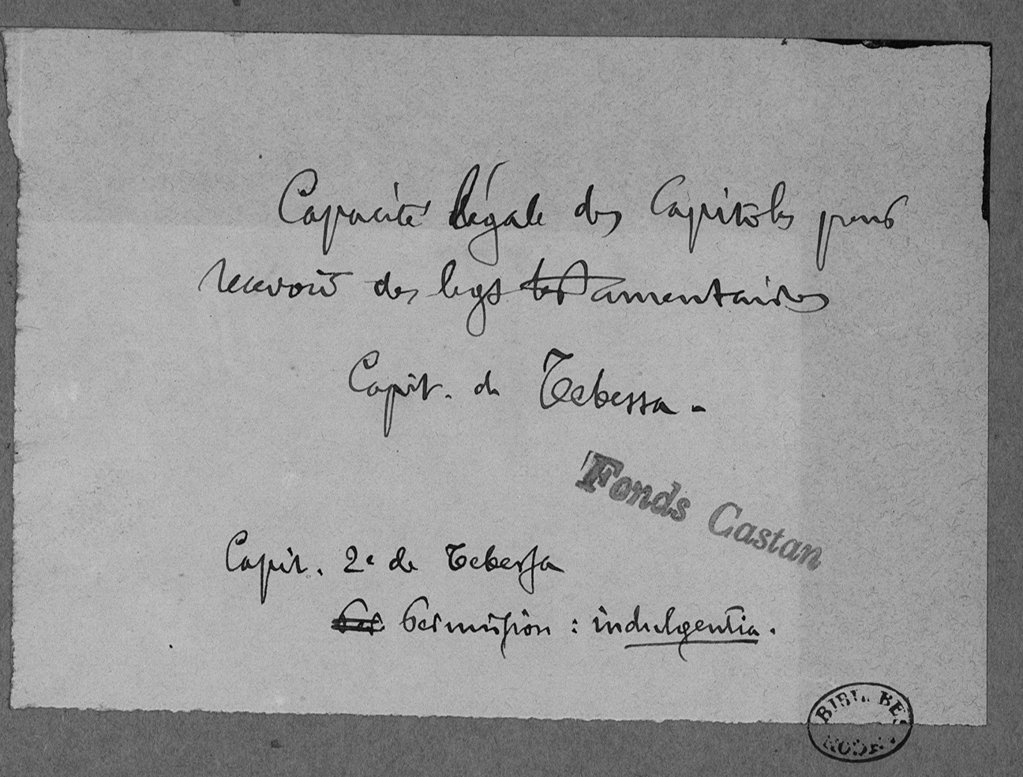 Capacité légale des Capitoles pour
recevoir des legs testamentaires
Capit. de Tebessa.
Fonds Castan
Capit. 2e de Tebessa
Permission : indulgentia.
BIBL. BES